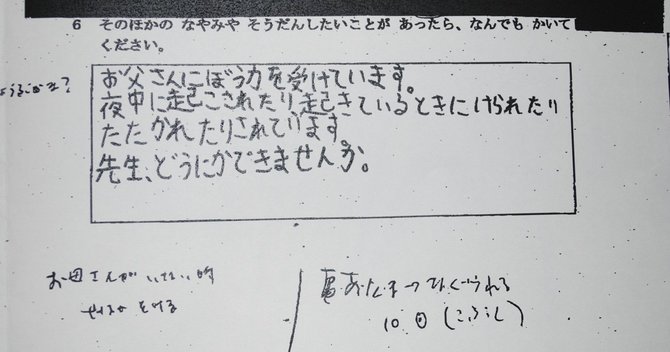 6 そのほかの なやみや そうだんしたいことが あったら、なんでも かいて
ください。
お父さんにぼう力を受けています。
夜中に起こされたり起きているときにけられたり
たたかれたりされています。
先生、どうにかできませんか。
お母さんがいない時
10回(こぶし)